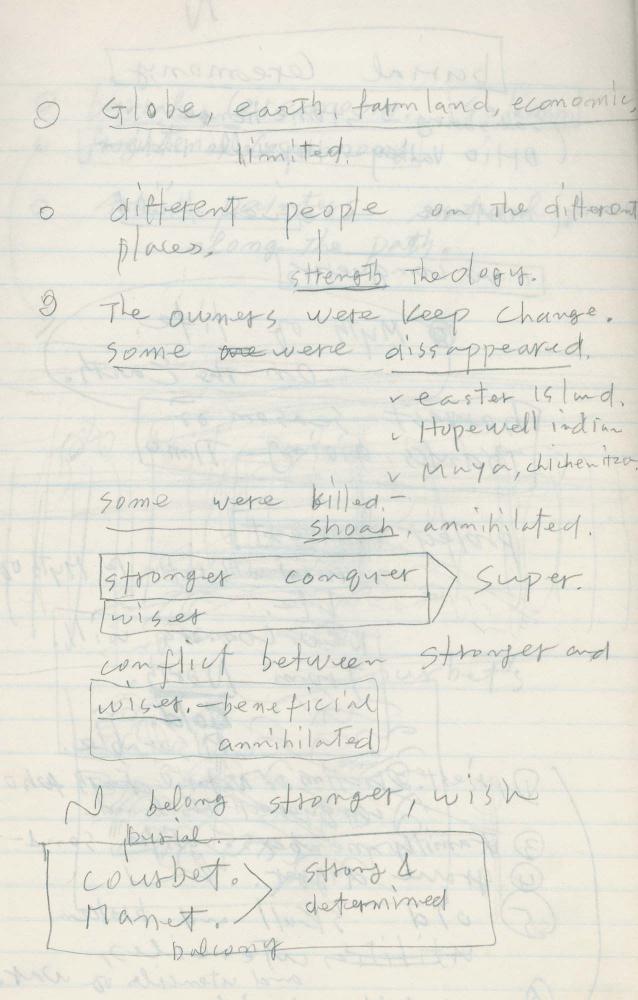 Globe, earth, farmland, economic,
limited.
different people on the different
places.
strength Theology.
The owners were keep change.
some are were dissappeared.
✓ easter Island.
✓ Hopewell indian
✓ Maya, chichenitza
some were killed. —
shoah, annihilated.
stronger conquer > super.
wiser
conflict between stronger and
wiser. — beneficial
annihilated
N belong stronger, wish
burial.
Courbet. > strong &
Manet. determined
balcony